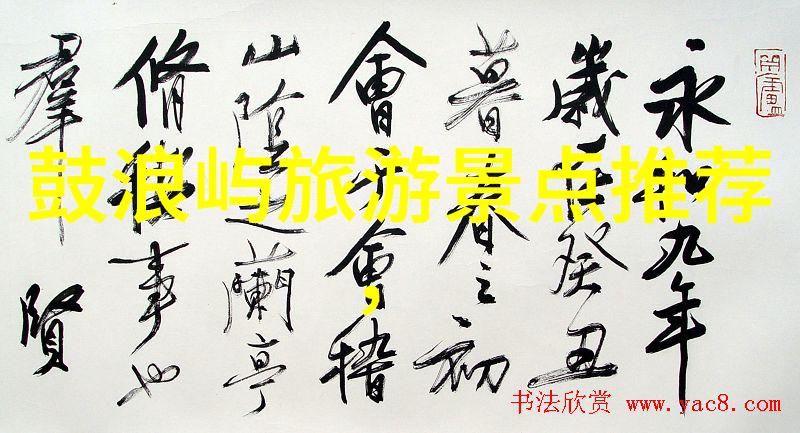 鼓浪屿旅游景点推荐
,
永和九年
歲在癸丑
暮春之初
會于會稽
山陰之蘭亭
脩稧事也
羣賢
书法欣赏 www.yac8.com